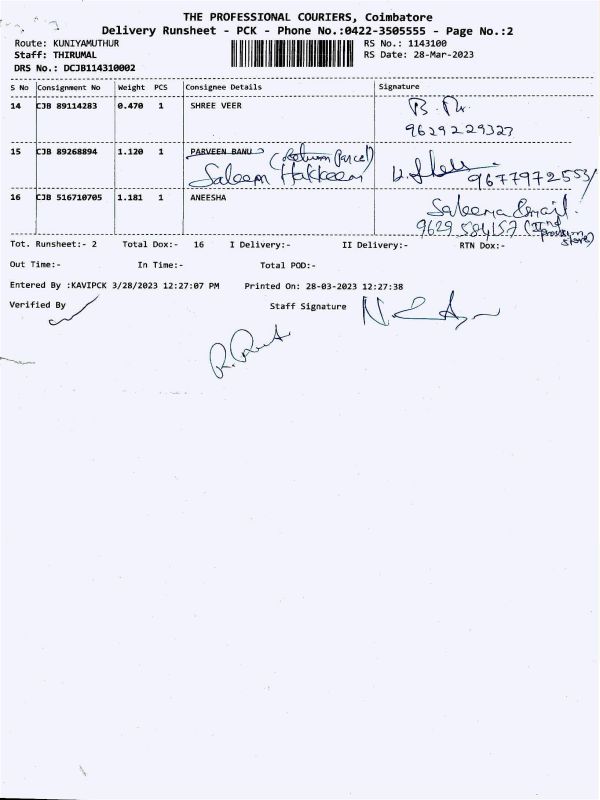 THE PROFESSIONAL COURIERS, Coimbatore
Delivery Runsheet - PCK - Phone No.:0422-3505555 - Page No.:2
Route: KUNIYAMUTHUR RS No.: 1143100
Staff: THIRUMAL RS Date: 28-Mar-2023
DRS No.: DCJB114310002
S No Consignment No Weight PCS Consignee Details Signature
14 CJB 89114283 0.470 1 SHREE VEER
9629229323
15 CJB 89268894 1.120 1 PARVEEN BANU (Return Parcel)
Saleem Hakkeem 9677972553/
16 CJB 516710705 1.181 1 ANEESHA
9629 584157
store)
Tot. Runsheet:- 2 Total Dox:- 16 I Delivery:- II Delivery:- RTN Dox:-
Out Time:- In Time:- Total POD:-
Entered By :KAVIPCK 3/28/2023 12:27:07 PM Printed On: 28-03-2023 12:27:38
Verified By Staff Signature